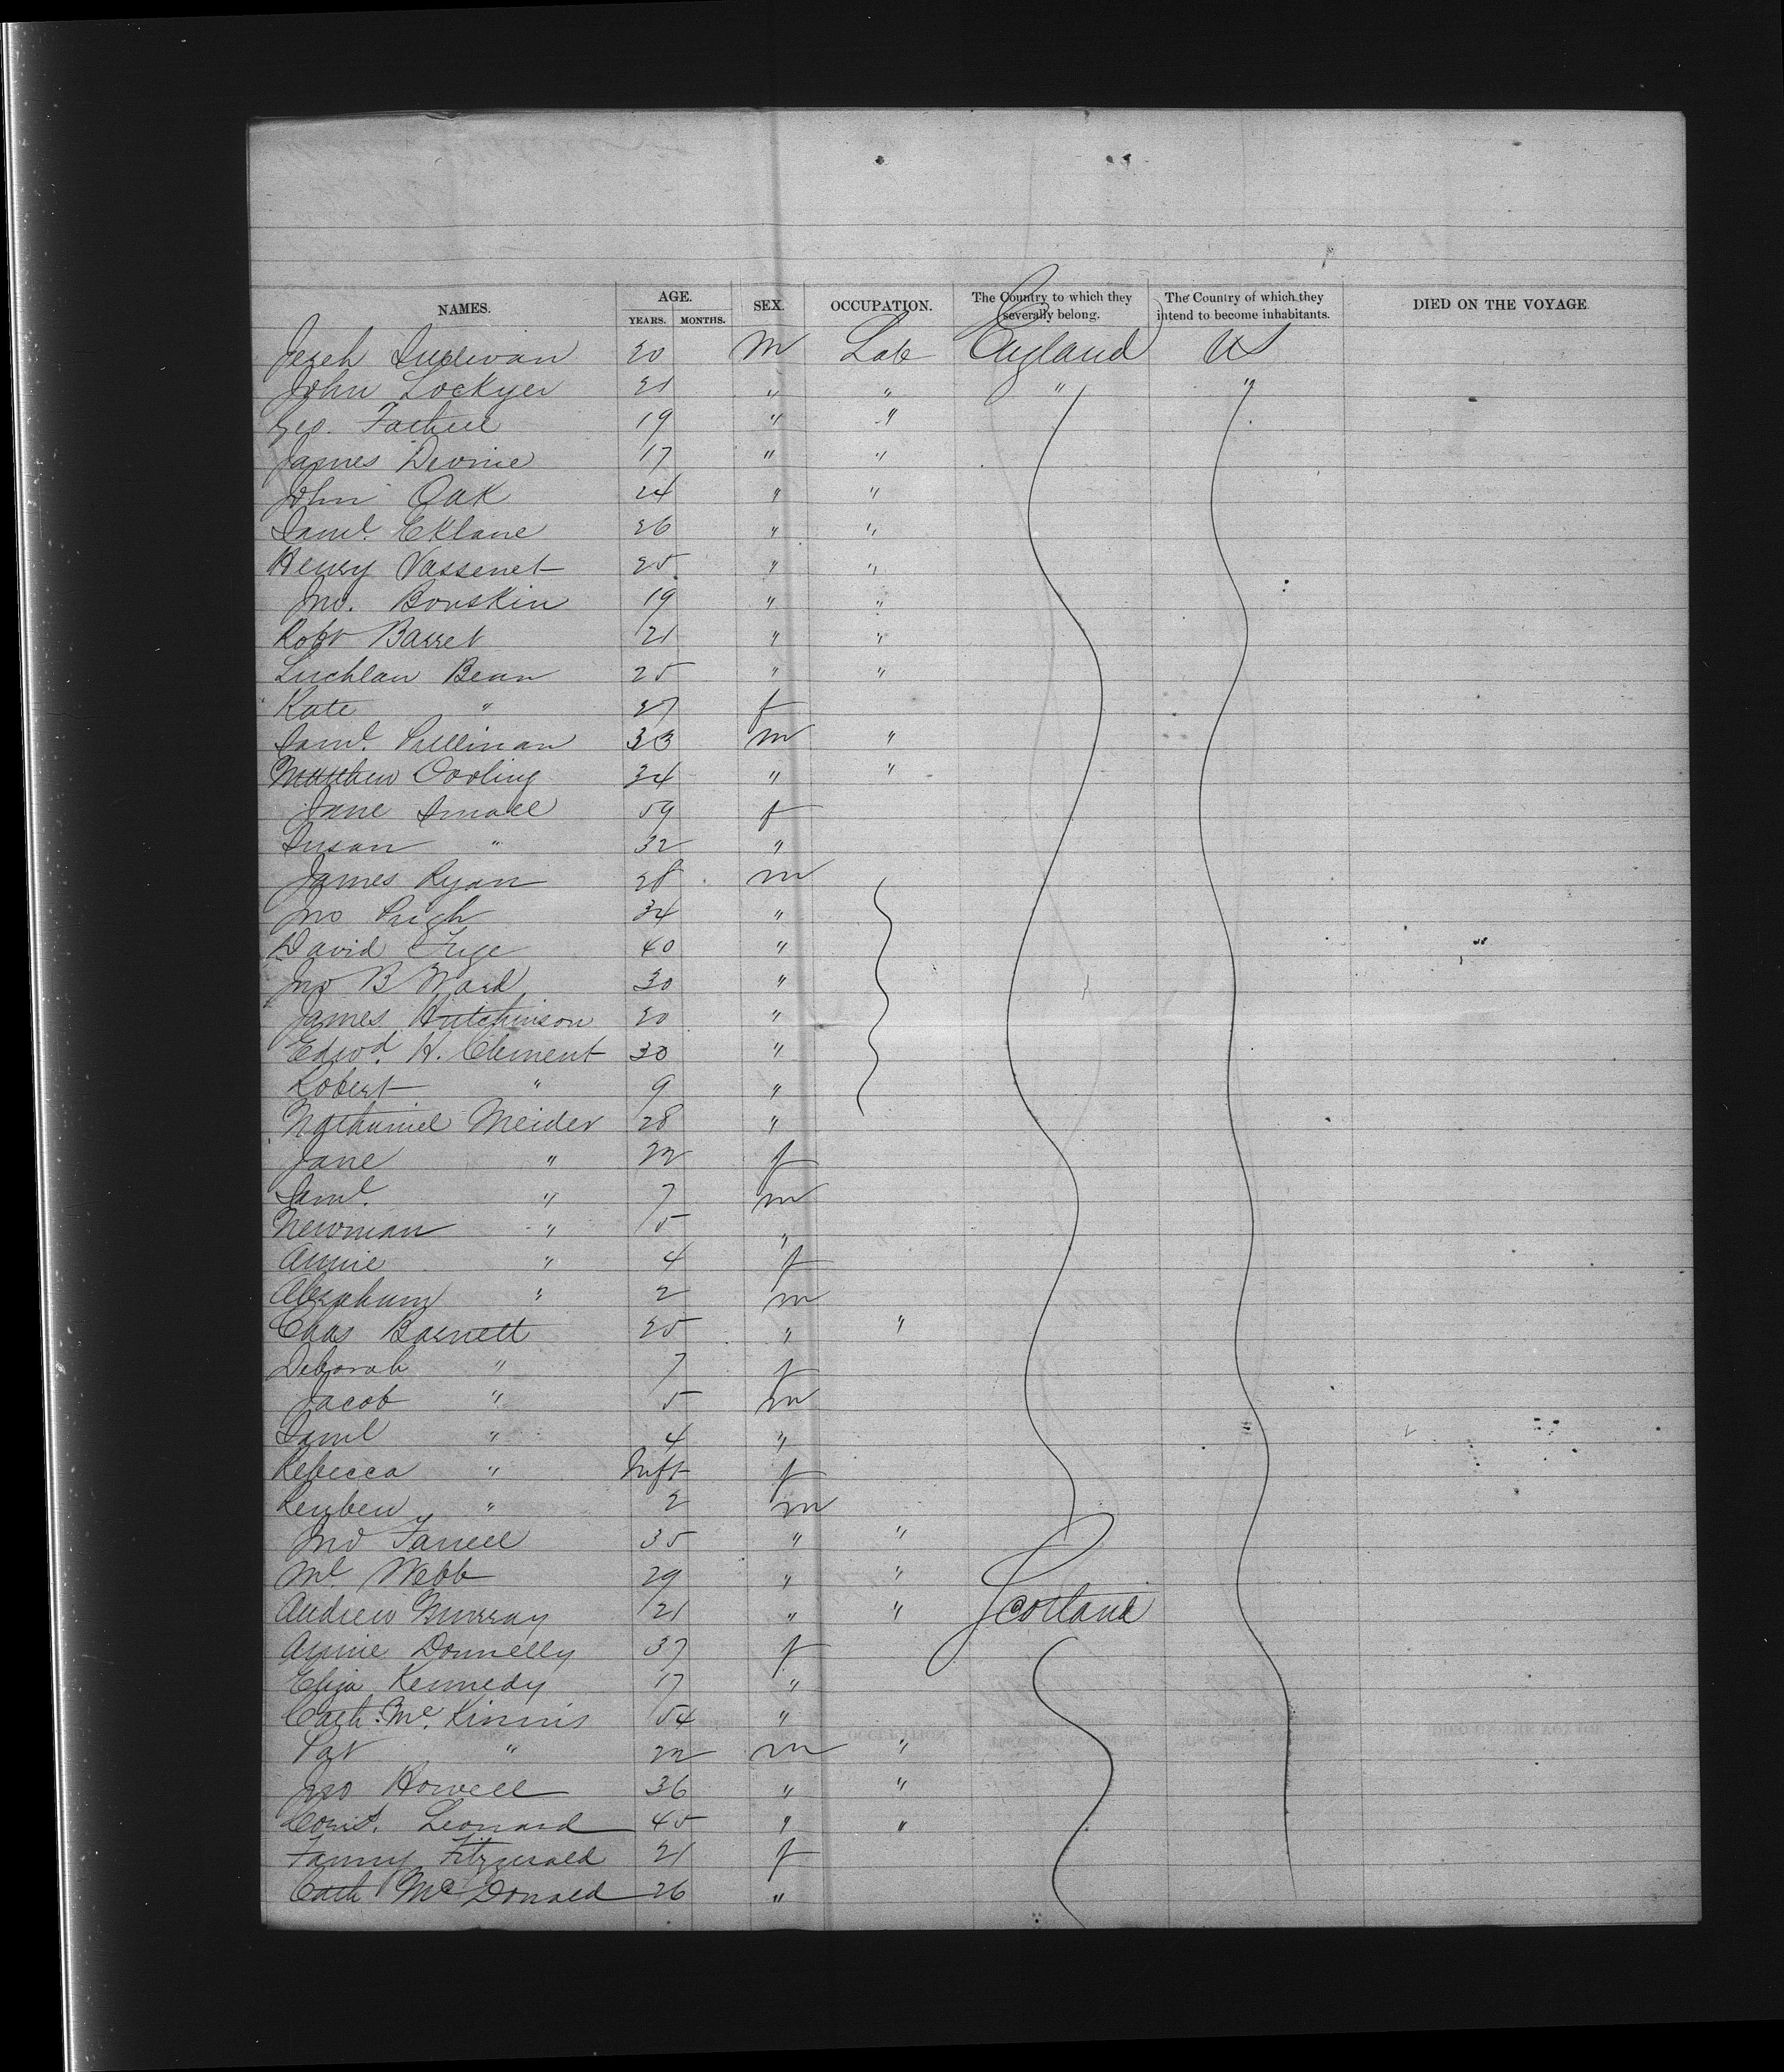 NAMES. AGE. YEARS. MONTHS. SEX. OCCUPATION. The Country to which they severally belong. The Country of which they intend to become inhabitants. DIED ON THE VOYAGE
Sullivan 20 M Lab England US
John Lockyer 21 " " " "
Geo. 19 " "
James Devine 17 " "
John Oak 24 " "
Saml. Eklane 26 " "
Henry Vassenet 25 " "
Jno. Bouskin 19 " "
Robt Barret 21 " "
Luchlan Bean 25 " "
Kate " 27 f
Saml. Pullinan 33 m "
Matthew Cooling 34 " "
Jane Small 59 f
Susan " 32 "
James Ryan 28 m
Jno Pugh 34 "
David 40 "
Jno B Ward 30 "
James Hutchinson 20 "
Edwd. H. Clement 30 "
Robert " 9 "
Nathaniel Meider 28 "
Jane " 22 f
Saml. " 7 m
Newman " 5 "
Annie " 4 f
Abraham " 2 m
Chas Barnett 25 " "
Deborah " 7 f
Jacob " 5 m
Saml " 4 "
Rebecca " Inft f
Reuben " 2 m
Jno Farrell 35 " "
Ml. Webb 29 " "
Andrew Murray 21 " " Scotland
Annie Donnelly 37 f
Eliza Kennedy 17 "
Cath. Mc. Kinnis 54 "
Pat " 22 m "
Jno Howell 36 " "
Leonard 45 " "
Fanny Fitzgerald 21 f
Cath Mc Donald 26 "